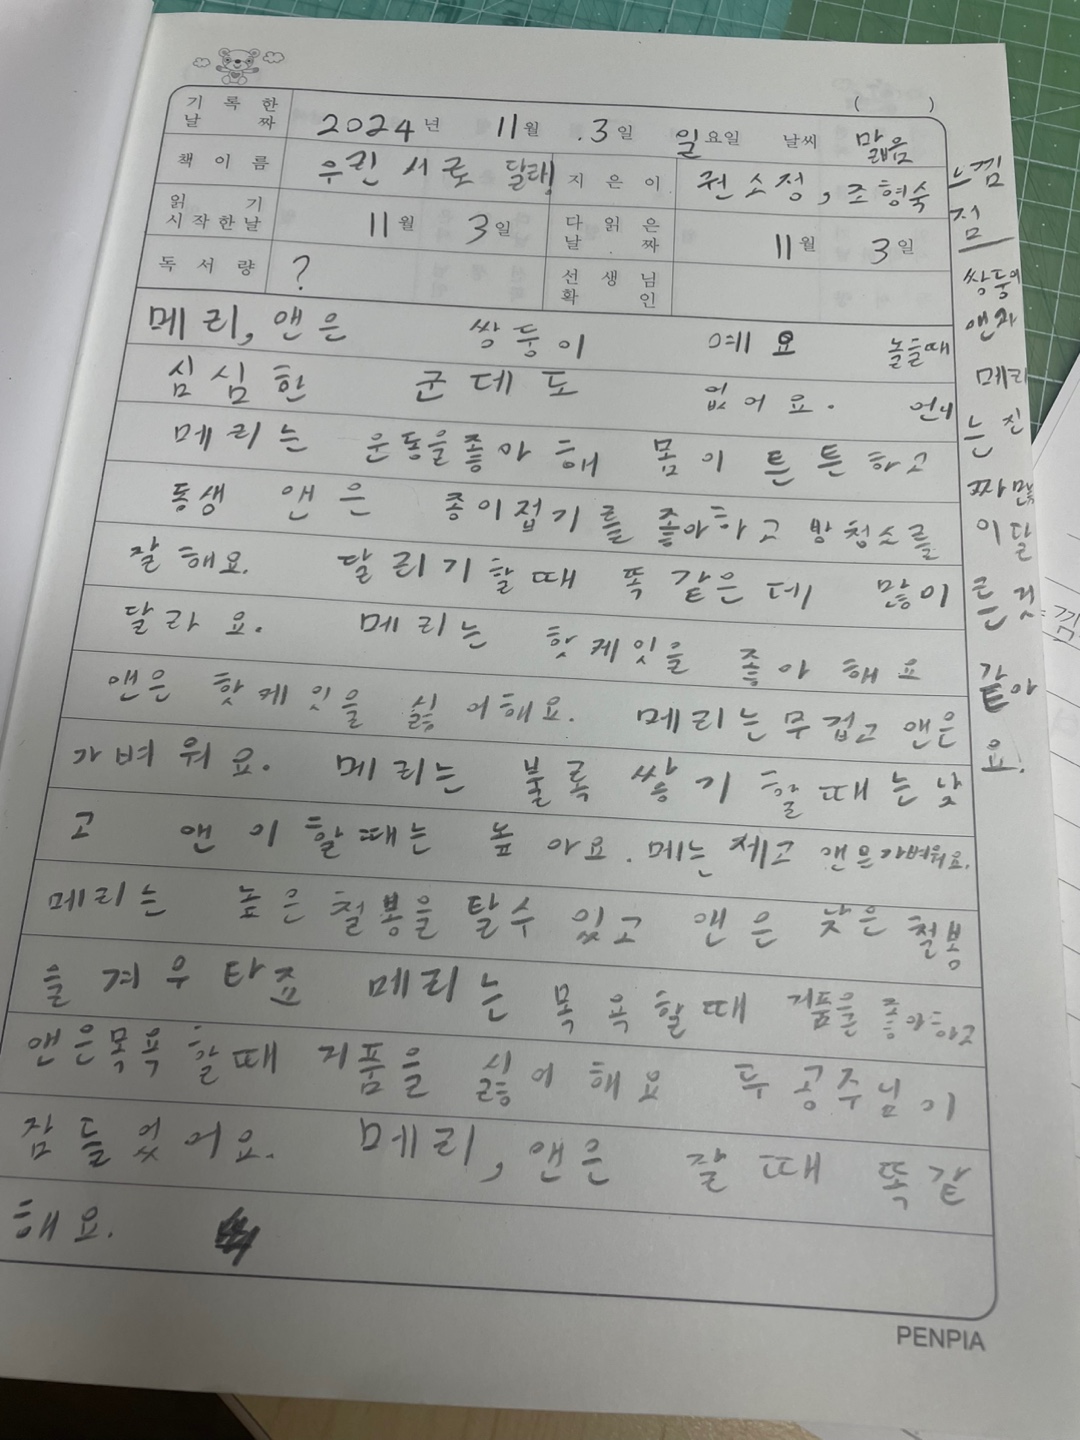 ( )
기록한 날짜 2024년 11월 .3일 일요일 날씨 맑음
책이름 우린 서로 달래! 지은이 권소정, 조형숙
읽기 시작한날 11월 3일 다읽은 날짜 11월 3일
독서량 ? 선생님 확인
메리, 앤은 쌍둥이 예요 놀들때
심심한 군데도 없어요. 언니
메리는 운동을좋아 해 몸이 튼튼하고
동생 앤은 종이접기를 좋아하고 방청소를
잘해요. 달리기할때 똑같은데 많이
달라요. 메리는 핫케잇을 좋아해요
앤은 핫케잇을 싫어해요. 메리는무겁고 앤은
가벼워요. 메리는 불록 쌓기 할때는낮
고 앤이할때는 높아요. 메는 체고 앤은가벼워요.
메리는 높은철봉을 탈수 있고 앤은 낮은 철봉
을겨우타죠 메리는 목욕할때 거품을 좋아하고
앤은목욕 할때 거품을 싫어해요 두공주님이
잠들었어요. 메리, 앤은 잘때 똑같
해요.
느낌
점
쌍둥이
앤자
메리
는진
짜많
이달
른것
같아
요.
PENPIA